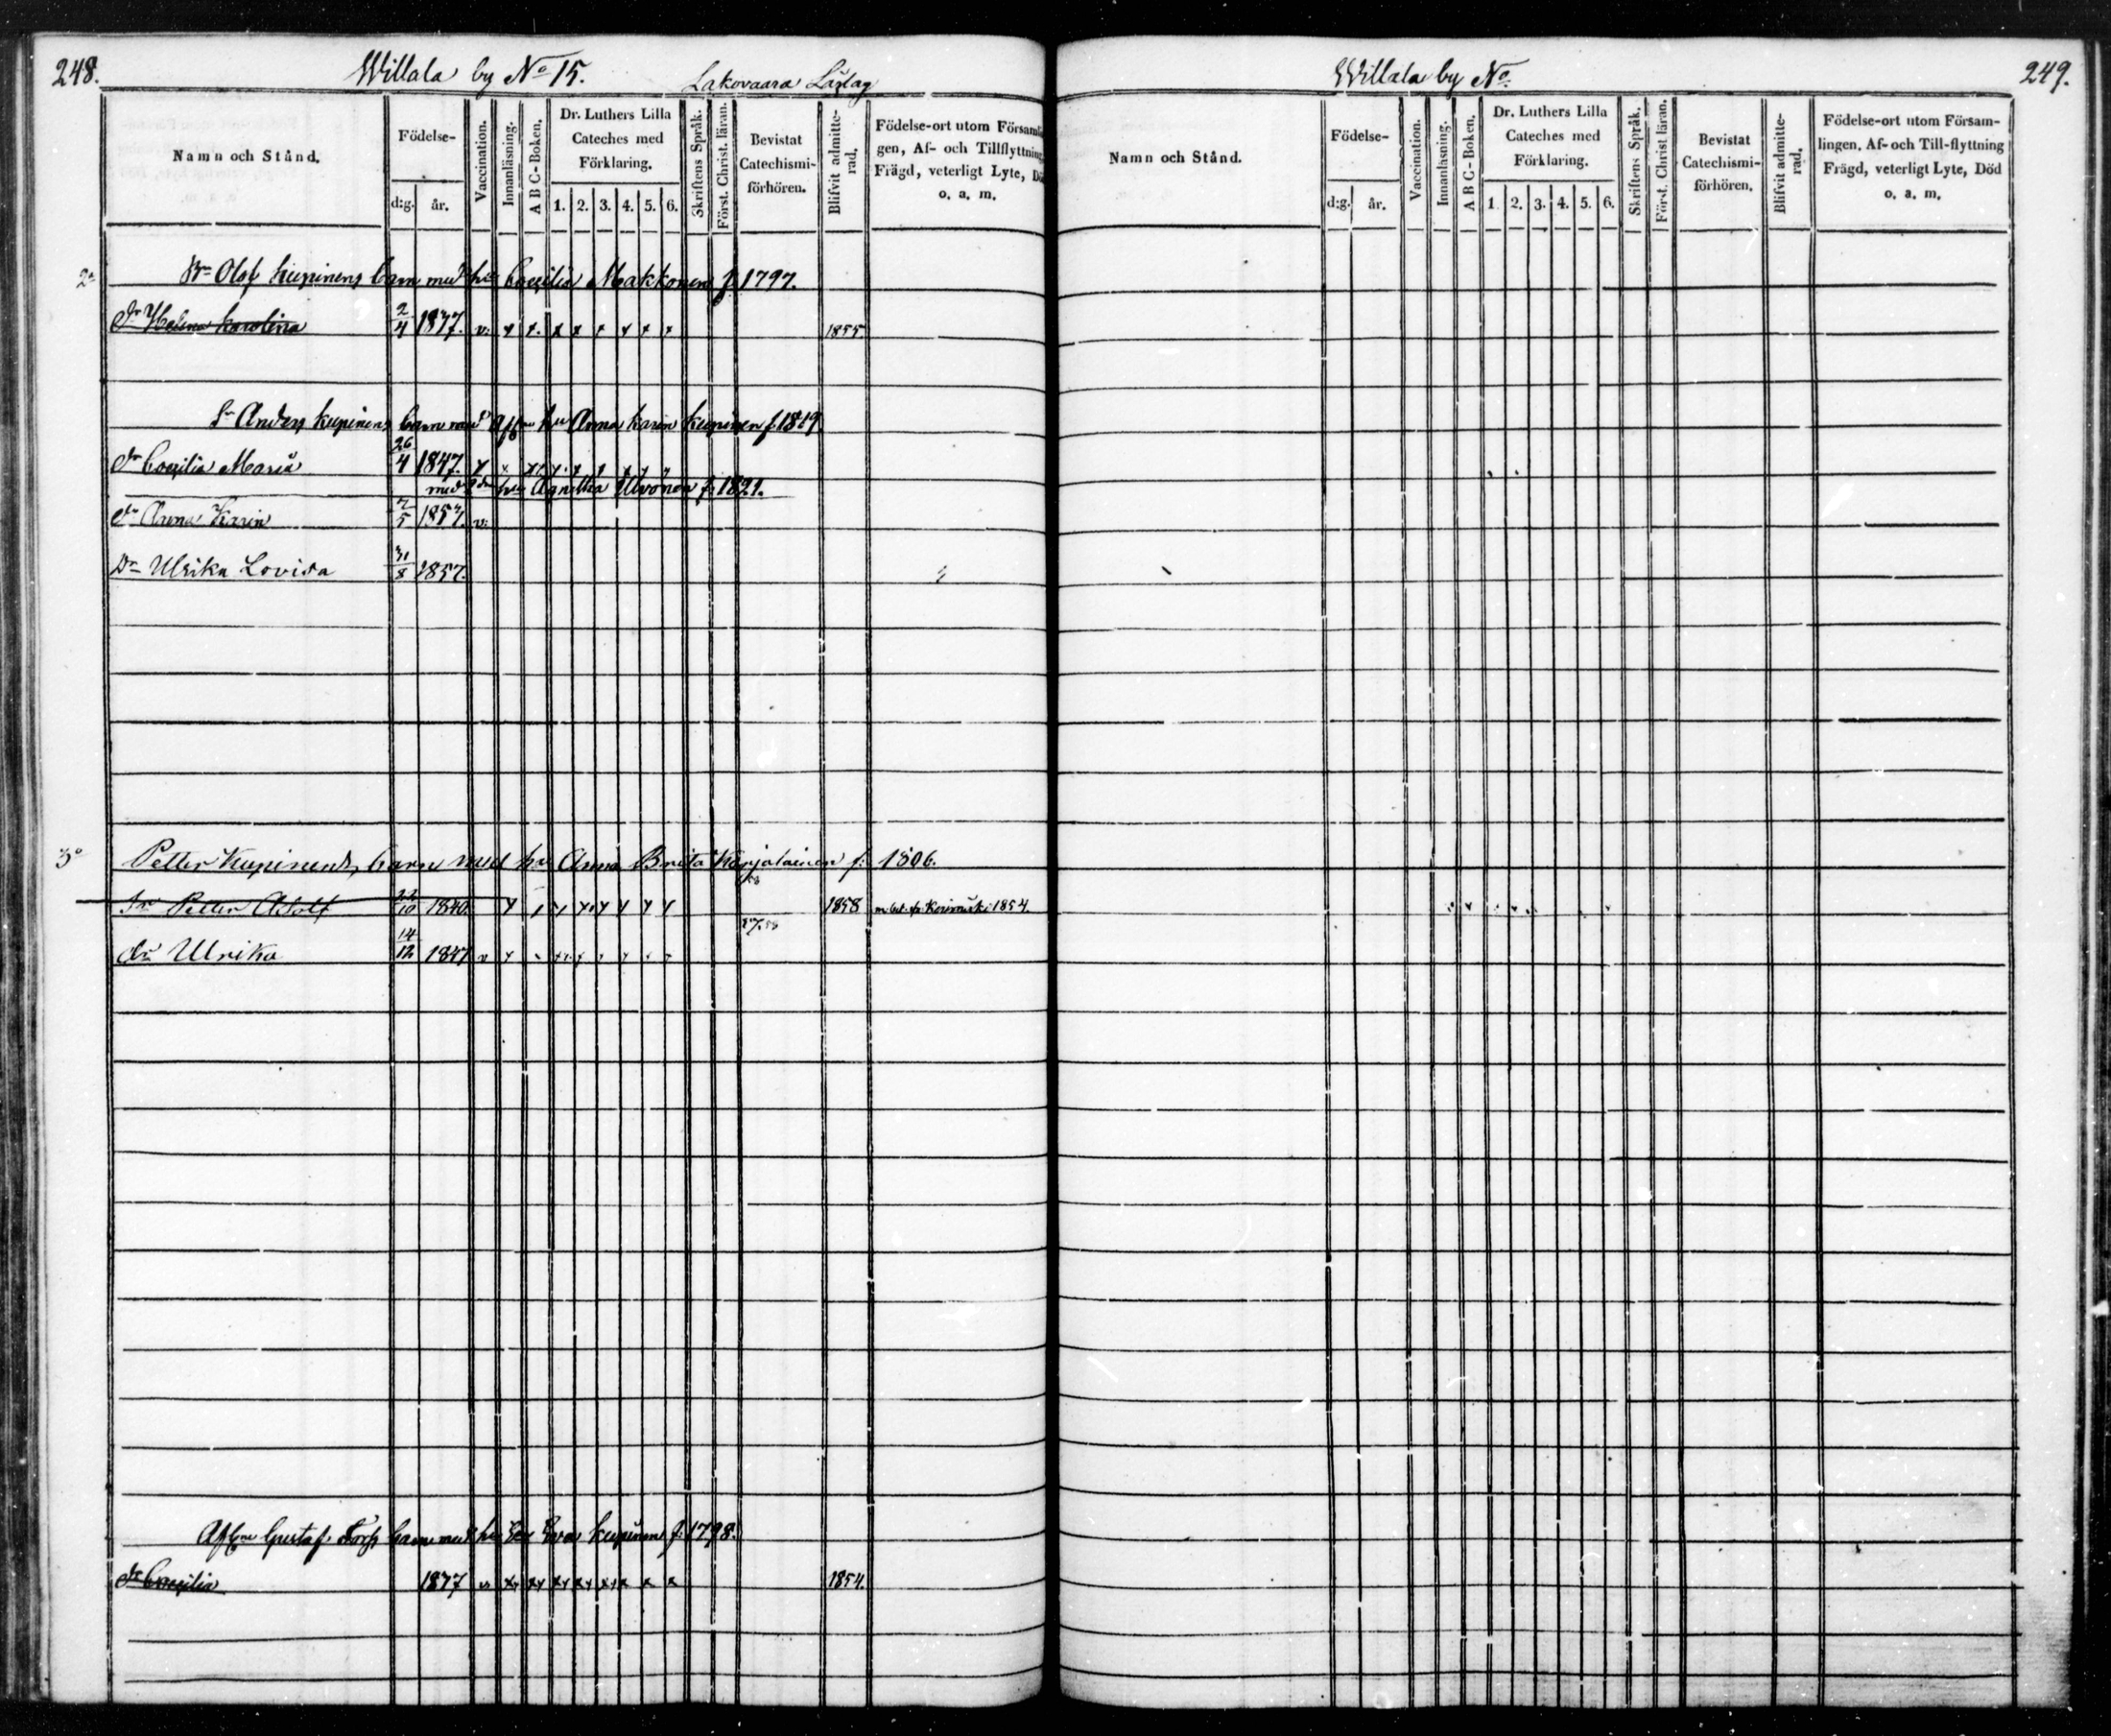 248.
Willala by No 15. Lakovaara Läslag
Namn och Stånd.
Födelse-
d:g. år.
Vaccination.
Innanläsning.
A B C-Boken.
Dr. Luthers Lilla
Cateches med
Förklaring.
1. 2. 3. 4. 5. 6.
Skriftens Språk.
Först. Christ. läran.
Bevistat
Catechismi-
förhören.
Blifvit admitte-
rad.
Födelse-ort utom Församl
gen, Af- och Tillflyttning,
Frägd, veterligt Lyte, Dö
o. a. m.
2o Bn Olof Kupinens barn med hu Cecilia Makkonen f. 1797.
dr Helena Karolina 2/4 1837. v. x x. x x x x x x 1855.
Sn Anders Kupinens barn med Afl. hu Anna Karin Kupinen f. 1819.
dr Cecilia Maria 26/4 1847.
med 2dra hu Agnetha Ulvonen f. 1821.
dr Anna Karin 7/5 1857. v.
Dr Ulrika Lovisa 31/8 1857.
3o Petter Kupinens, barn med hu Anna Brita Karjalainen f. 1806.
Sn Petter Adolf 22/10 1840. 1858 m. bet. fr. Kerimäki 1854.
57.58
dr Ulrika 14/12 1847 v
Afl. Gustaf barn med hu Eva Kupinen f. 1798.
dr Cecilia 1837 v xx xx xx xx xx x x x 1854.
Willala by No
249.
Namn och Stånd.
Födelse-
d:g. år.
Vaccination.
Innanläsning.
A B C-Boken.
Dr. Luthers Lilla
Cateches med
Förklaring.
1. 2. 3. 4. 5. 6.
Skriftens Språk.
Först. Christ läran.
Bevistat
Catechismi-
förhören.
Blifvit admitte-
rad.
Födelse-ort utom Försam-
lingen, Af- och Till-flyttning
Frägd, veterligt Lyte, Död
o. a. m.